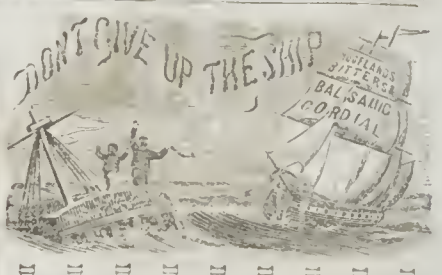 DON'T GIVE UP THE SHIP
HOOFLANDS
BITTERS &
BALSAMIC
CORDIAL